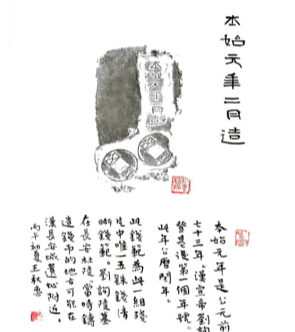 本始元年二月造
本始元年是公元前
七十三年，漢宣帝劉詢
登基後第一個年號，
此年八曆閏年。
此錢範為此一組殘
片中唯一五銖錢清
晰錢範，劉詢陵墓
在長安杜陵，當時鑄
造錢币的地方可能在
漢長安城遺址附近，
丙午初夏王秋惠